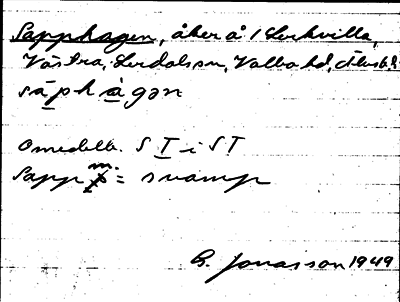 Sapphagen, åker å 1 Lerkvilla,
Västra, Lerdalssn, Valbo hd, Älvsb. l.
såphàgən
omedelb. S I i S T
Sapp m. = svamp
B. Jonasson 1949